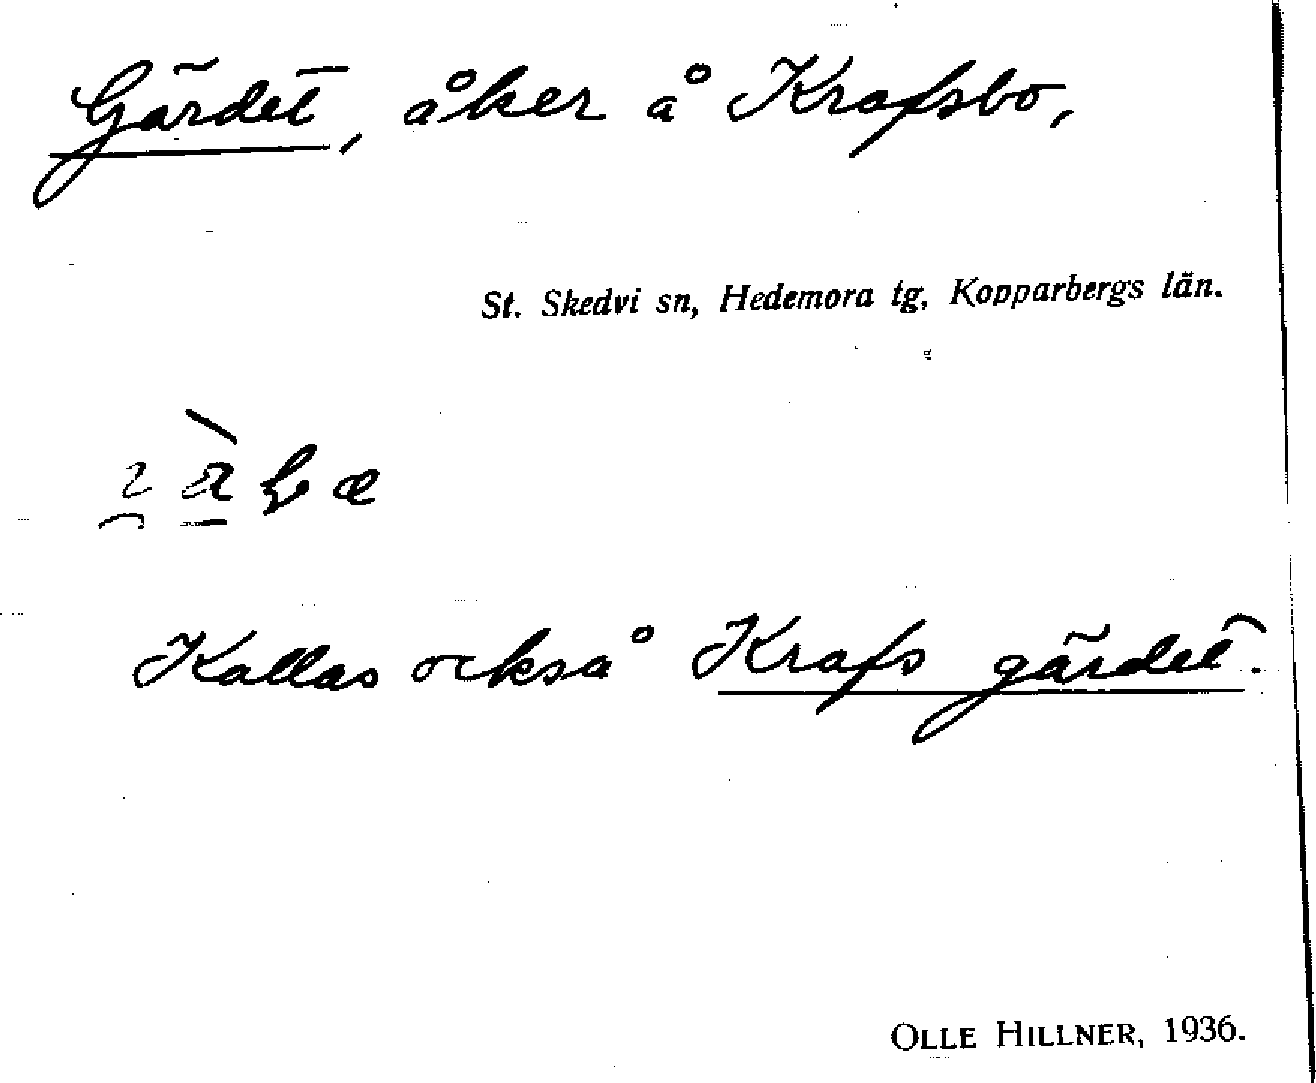 Gärdet, åker å Krafsbo,
St. Skedvi sn, Hedemora tg, Kopparbergs län.
Kallas också Krafs gärdet.
OLLE HILLNER, 1936.